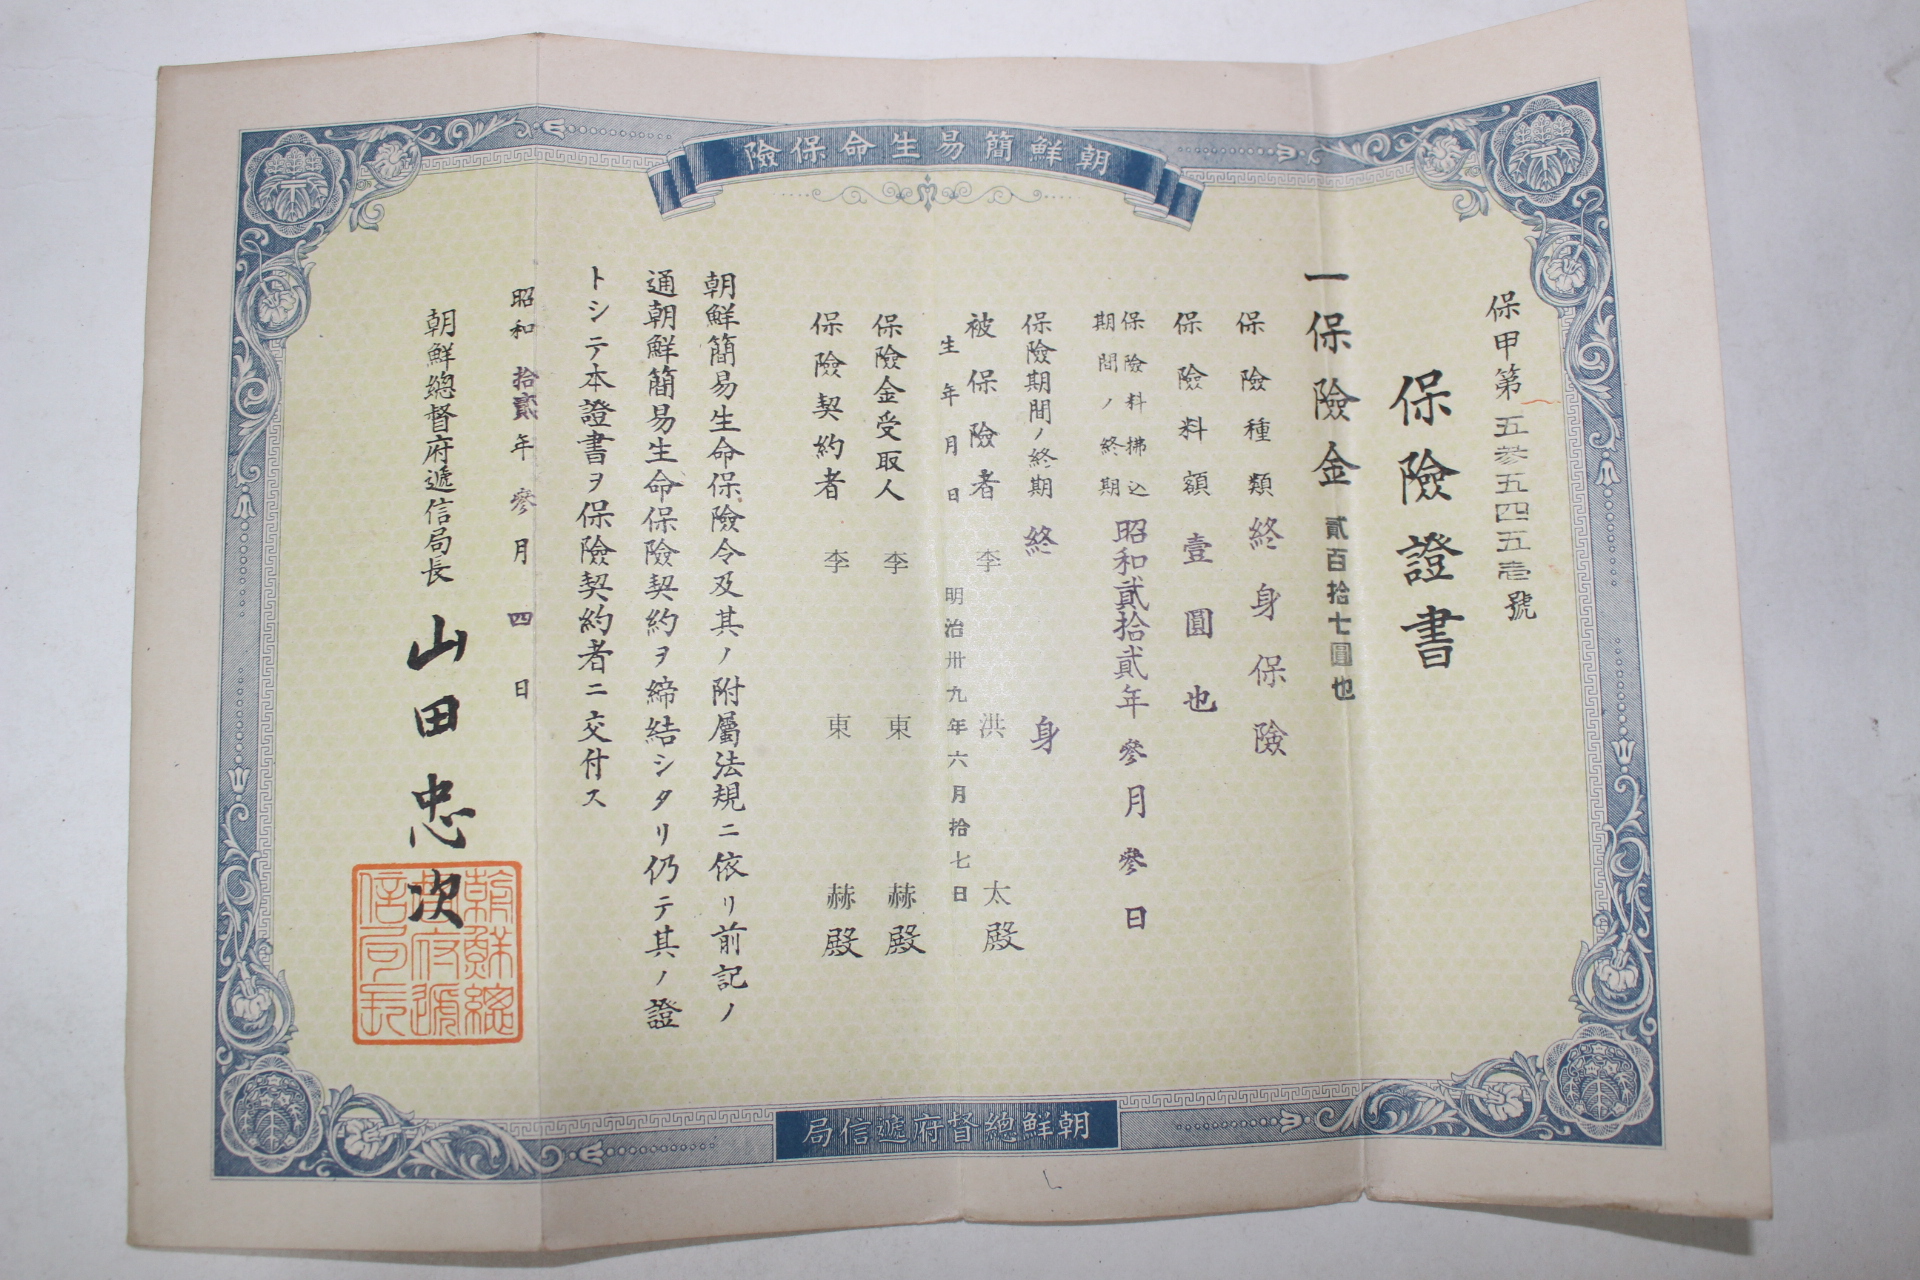 朝鮮簡易生命保險
保甲第五参五四五壱號
保險證書
一保險金貳百拾七圓也
保險種類終身保險
保險料額壹圓也
保險料拂込
期間ノ終期昭和貳拾貳年參月參日
保險期間ノ終期終身
被保險者李洪太殿
生年月日明治卅九年六月拾七日
保險金受取人李東赫殿
保險契約者李東赫殿
朝鮮簡易生命保險令及其ノ附屬法規ニ依リ前記ノ
通朝鮮簡易生命保險契約ヲ締結シタリ仍テ其ノ證
トシテ本證書ヲ保險契約者ニ交付ス
昭和拾貳年參月四日
朝鮮總督府遞信局長山田忠次
朝鮮總
督府遞
信局長
朝鮮總督府遞信局